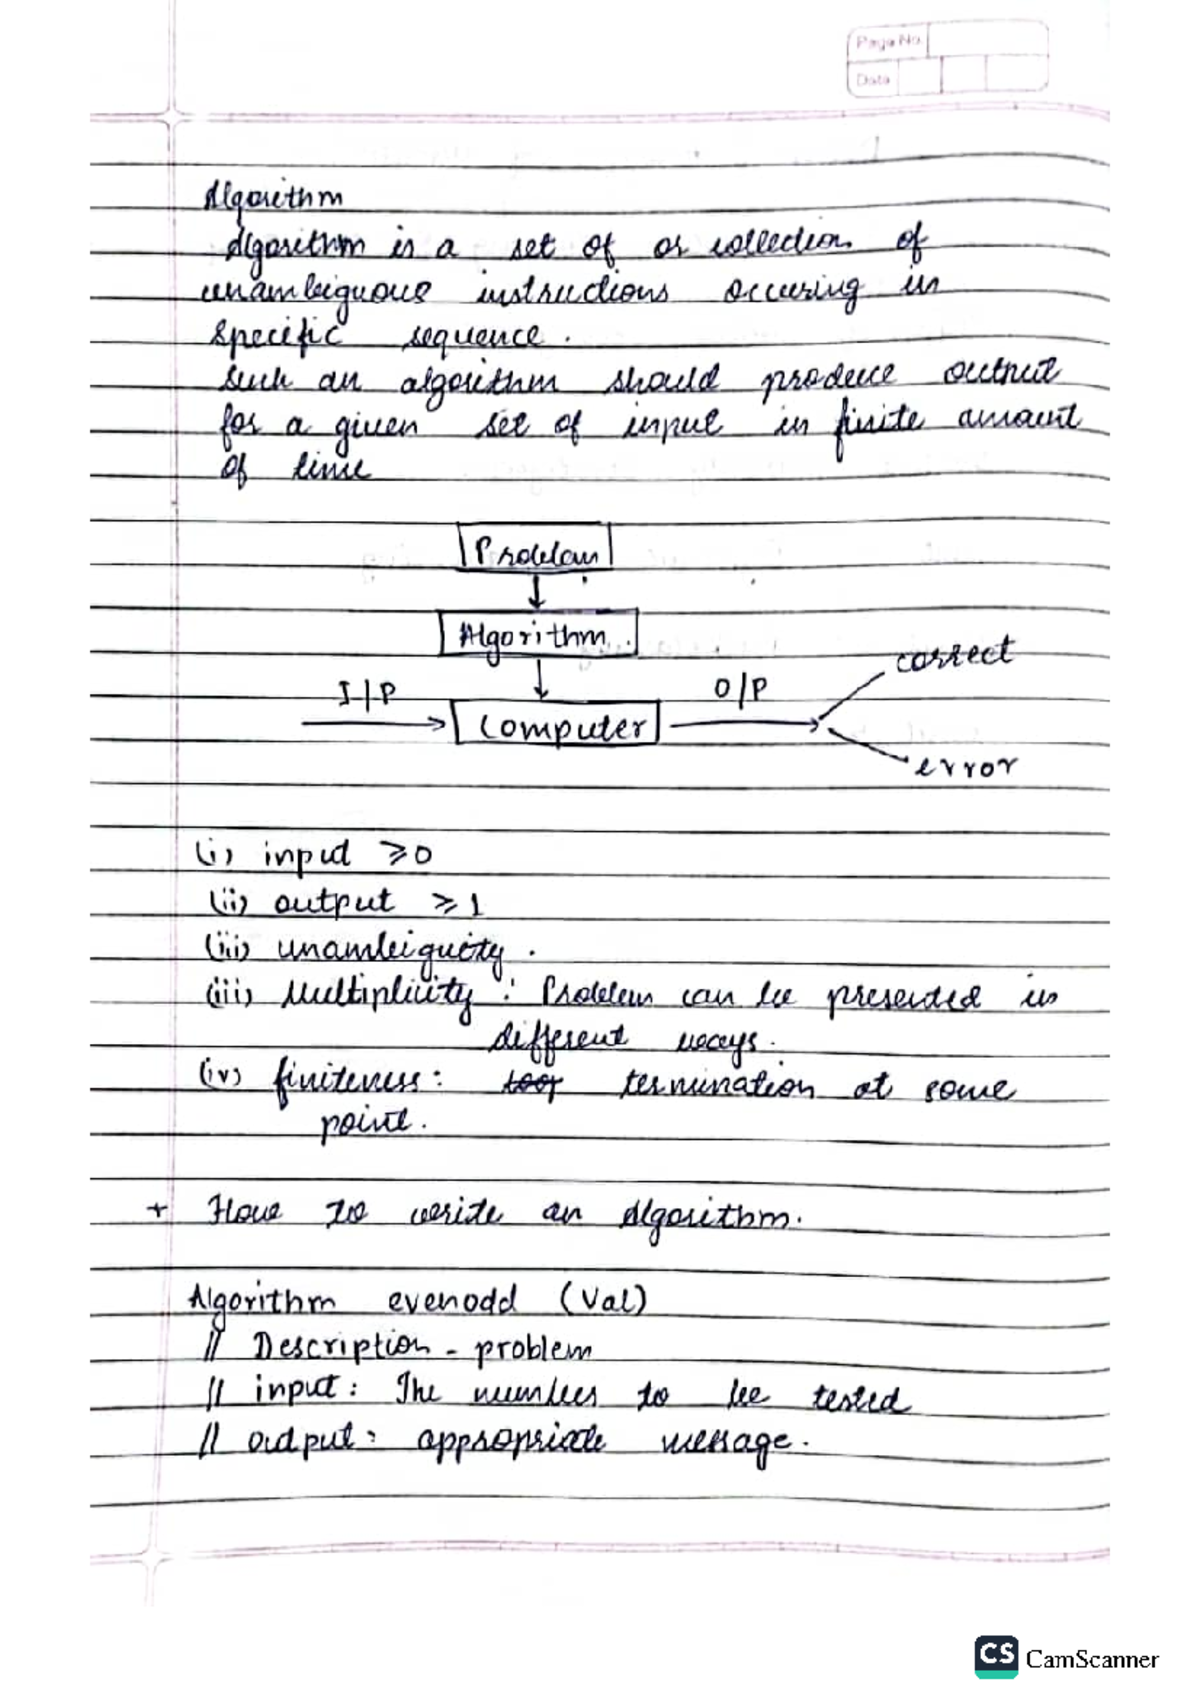 Page No.
Date
Algorithm
Algorithm is a set of or collection of
unambiguous instructions occuring in
specific sequence.
Such an algorithm should produce output
for a given set of input in finite amount
of time
Problem
Algorithm.
correct
I/P
O/P
Computer
error
(i) input ≥0
(ii) output ≥1
(iii) unambiguity.
(iii) Multiplicity : Problem can be presented in
different ways.
(iv) finiteness: termination at some
point.
+ How to write an Algorithm.
Algorithm evenodd (Val)
// Description - problem
// input: The numbers to be tested
// output: appropriate message.
CS CamScanner